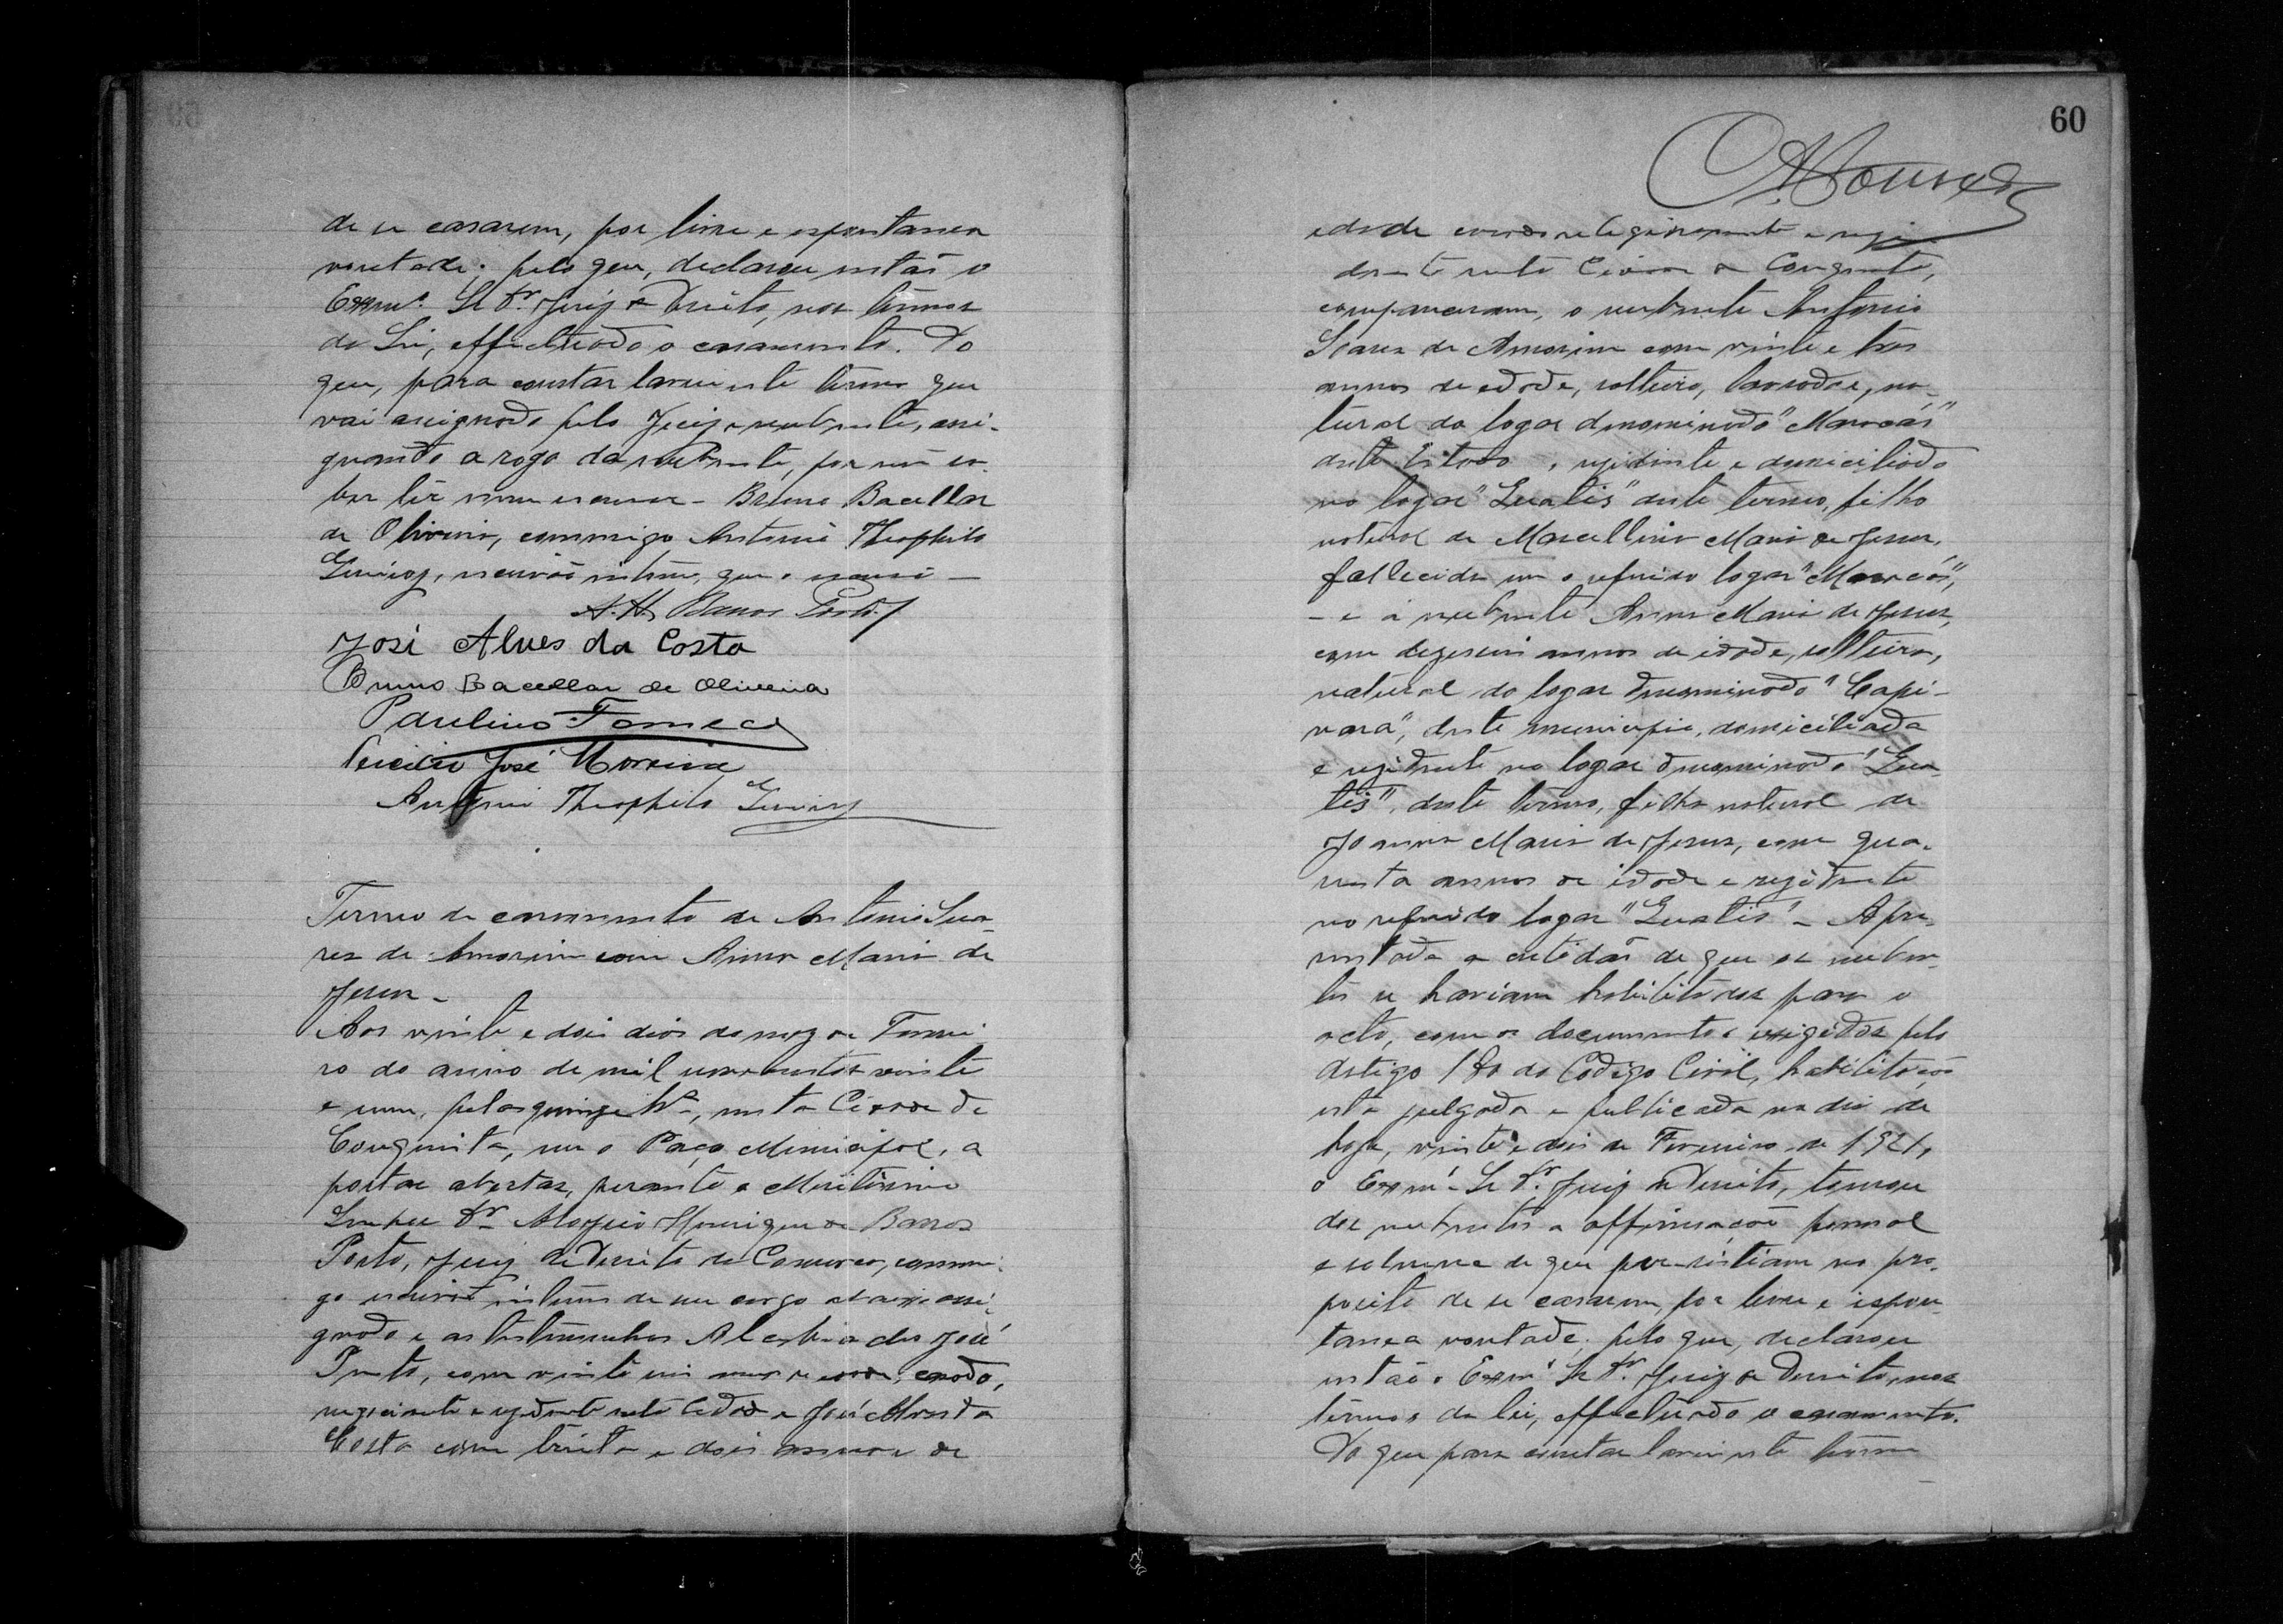 de se casarem, por livre e espontanea
vontade; pelo que, declarou então o
Exmº. Sr. Dr. Juiz de Direito, nos termos
da Lei, effectuado o casamento. Do
que, para constar lavrei este termo que
vai assignado pelo Juiz e nubente, assi-
gnando a rogo da nubente, por não sa-
ber lêr nem escrever - Bruno Bacellar
de Oliveira, commigo Antonio Theophilo
escrivão interino, que o escrevi -
A. H. Barros Porto
José Alves da Costa
Bruno Bacellar de Oliveira
Paulino Fonseca
José Moreira
Antonio Theophilo
Termo de casamento de Antonio Soa-
res de Amorim com Anna Maria de
Jesus -
Aos vinte e dois dias do mez de Feverei-
ro do anno de mil novecentos e vinte
e um, pelas quinze hs, nesta Cidade de
Conquista, em o Paço Municipal, a
portas abertas, perante o Meritissimo
Senhor Dr. Aloysio Henrique de Barros
Porto, Juiz de Direito da Comarca, commi-
go escrivão interino de seu cargo abaixo assi-
gnado e as testemunhas José
Preto, com vinte seis annos de edade, casado,
negociante e residente nesta Cidade e José Alves da
Costa com trinta e dois annos de
60
edade casado religiosamente e resi-
dente nesta Cidade de Conquista,
compareceram, o nubente Antonio
Soares de Amorim com vinte e tres
annos de edade, solteiro, lavrador, na-
tural do logar denominado "Maracás"
deste Estado, residente e domiciliado
no logar "Quatis" deste termo, filho
natural de Marcellina Maria de Jesus,
fallecida em o referido logar "Maracás",
- e a nubente Anna Maria de Jesus,
com dezeseis annos de idade, solteira,
natural do logar denominado "Capi-
vara", deste municipio, domiciliada
e residente no logar denominado "Qua-
tis", deste termo, filha natural de
Joanna Maria de Jesus, com qua-
renta annos de idade e residente
no referido logar "Quatis" - Apre-
sentada a certidão de que os nuben-
tes se haviam habilitados para o
acto, com os documentos exigidos pelo
Artigo 180 do Codigo Civil, habilitação
esta julgada e publicada no dia de
hoje, vinte e dois de Fevereiro de 1921,
o Exmº Sr. Dr. Juiz de Direito, tomou
dos nubentes a affirmação formal
e solemne de que persistiam no pro-
posito de se casarem, por livre e espon-
tanea vontade; pelo que, declarou
então o Exmº Sr. Dr. Juiz de Direito, nos
termos da lei, effectuado o casamento.
Do que para constar lavrei este termo